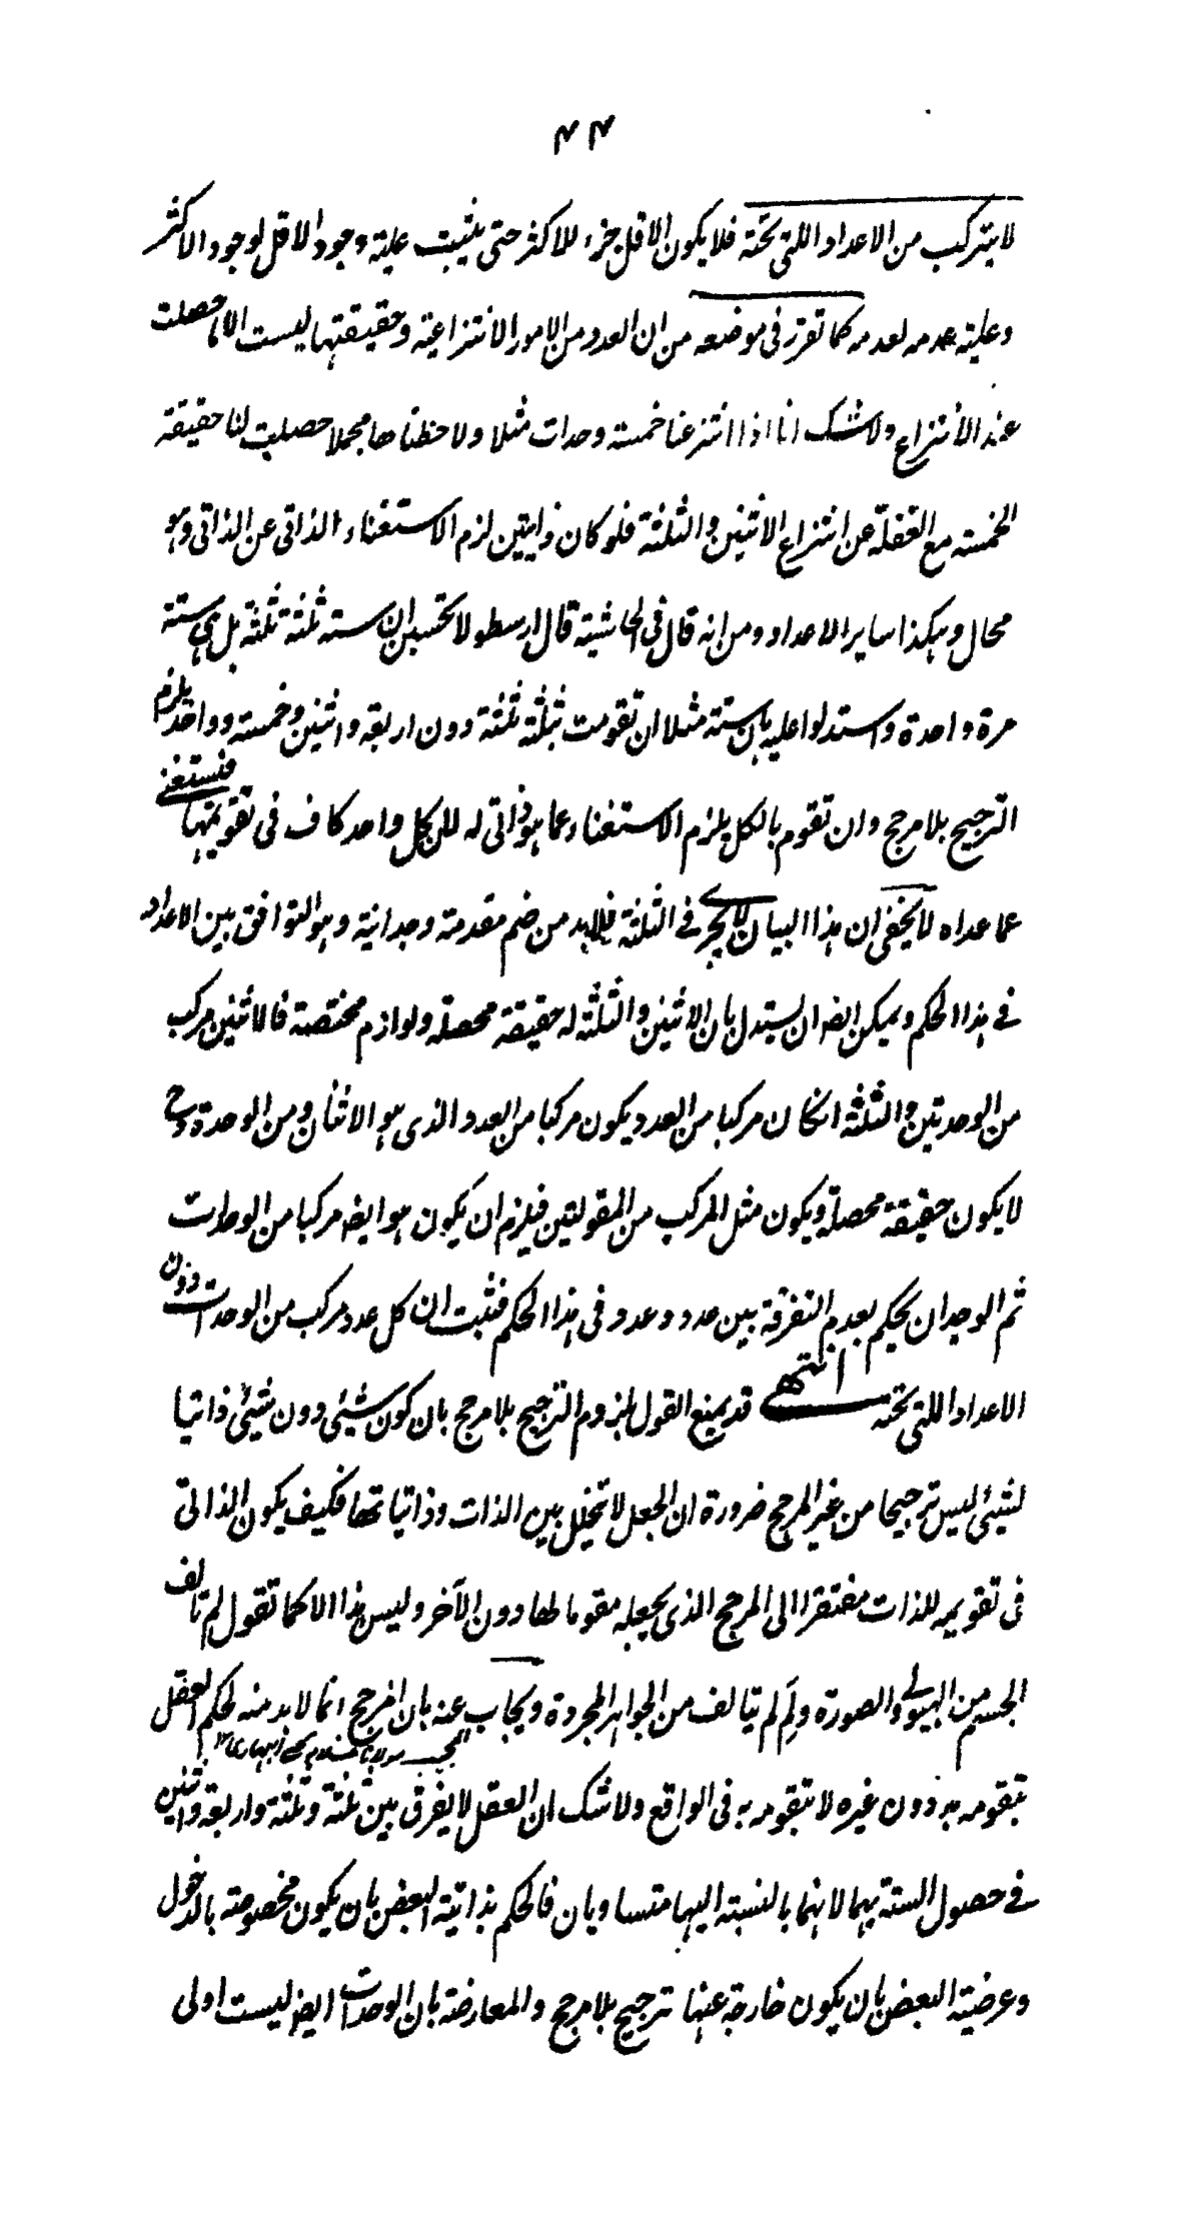 ٤٤
لا يتركب من الاعداد اللتى تحته فلا يكون الاقل جزء للاكثر حتى يثبت علية وجود الاقل لوجود الاكثر
وعلية عدمه لعدمه كما تقرر فى موضعه من ان العدد من الامور الانتزاعية وحقيقتها ليست الا ما حصلت
عند الانتزاع ولا شك انا اذا انتزعنا خمسة وحدات مثلا ولاحظناها مجملا حصلت لنا حقيقة
الخمسة مع الغفلة عن انتزاع الاثنين والثلثة فلو كان ذاتيين لزم الاستغناء الذاتى عن الذاتى وهو
محال وهكذا ساير الاعداد ومن انه قال فى الحاشية قال ارسطو لا تحسبن ان ستة ثلثة ثلثة بل هى ستة
مرة واحدة واستدلوا عليه بان ستة مثلا ان تقومت بثلثة ثلثة دون اربعة واثنين وخمسة وواحد يلزم
الترجيح بلا مرجح وان تقوم بالكل يلزم الاستغناء عما هو ذاتى له لان كل واحد كاف فى تقويمها فنستغنى
عما عداه لا يخفى ان هذا البيان لا يجرى فى الثلثة فلا بد من ضم مقدمة وجدانية وهو التوافق بين الاعداد
فى هذا الحكم ويمكن ايضا ان يستدل بان الاثنين والثلثة له حقيقة محصلة ولوازم مختصة فالاثنين مركب
من الوحدتين والثلثة انكان مركبا من العدد يكون مركبا من العدد الذى هو الاثنان ومن الوحدة وح
لا يكون حقيقة محصلة ويكون مثل المركب من المقولتين فيلزم ان يكون هو ايضا مركبا من الوحدات
ثم الوجدان يحكم بعدم التفرقة بين عدد وعدد فى هذا الحكم فثبت ان كل عدد مركب من الوحدات دون
الاعداد اللتى تحته انتهى قد يمنع القول بلزوم الترجيح بلا مرجح بان كون شيئى دون شيئى ذاتيا
لشيئى ليس ترجيحا من غير المرجح ضرورة ان الجعل لا تخلل بين الذات وذاتياتها فكيف يكون الذاتى
فى تقويمه للذات مفتقرا الى المرجح الذى يجعله مقوما لها دون الآخر وليس هذا الا كما تقول لم تالف
الجسم من الهيولى والصورة ولِمَ لم يتالف من الجواهر المجردة ويجاب عنه بان المرجح انما لا بد منه لحكم العقل
بتقومه به دون غيره لا بتقومه به فى الواقع ولا شك ان العقل لا يفرق بين ثلثة وثلثة واربعة واثنين
فى حصول الستة بهما لانهما بالنسبة اليها متساويان فالحكم بذاتية البعض بان يكون مخصوصة بالدخول
وعرضية البعض بان يكون خارجة عنها ترجيح بلا مرجح والمعارضة بان الوحدات ايضا ليست اولى